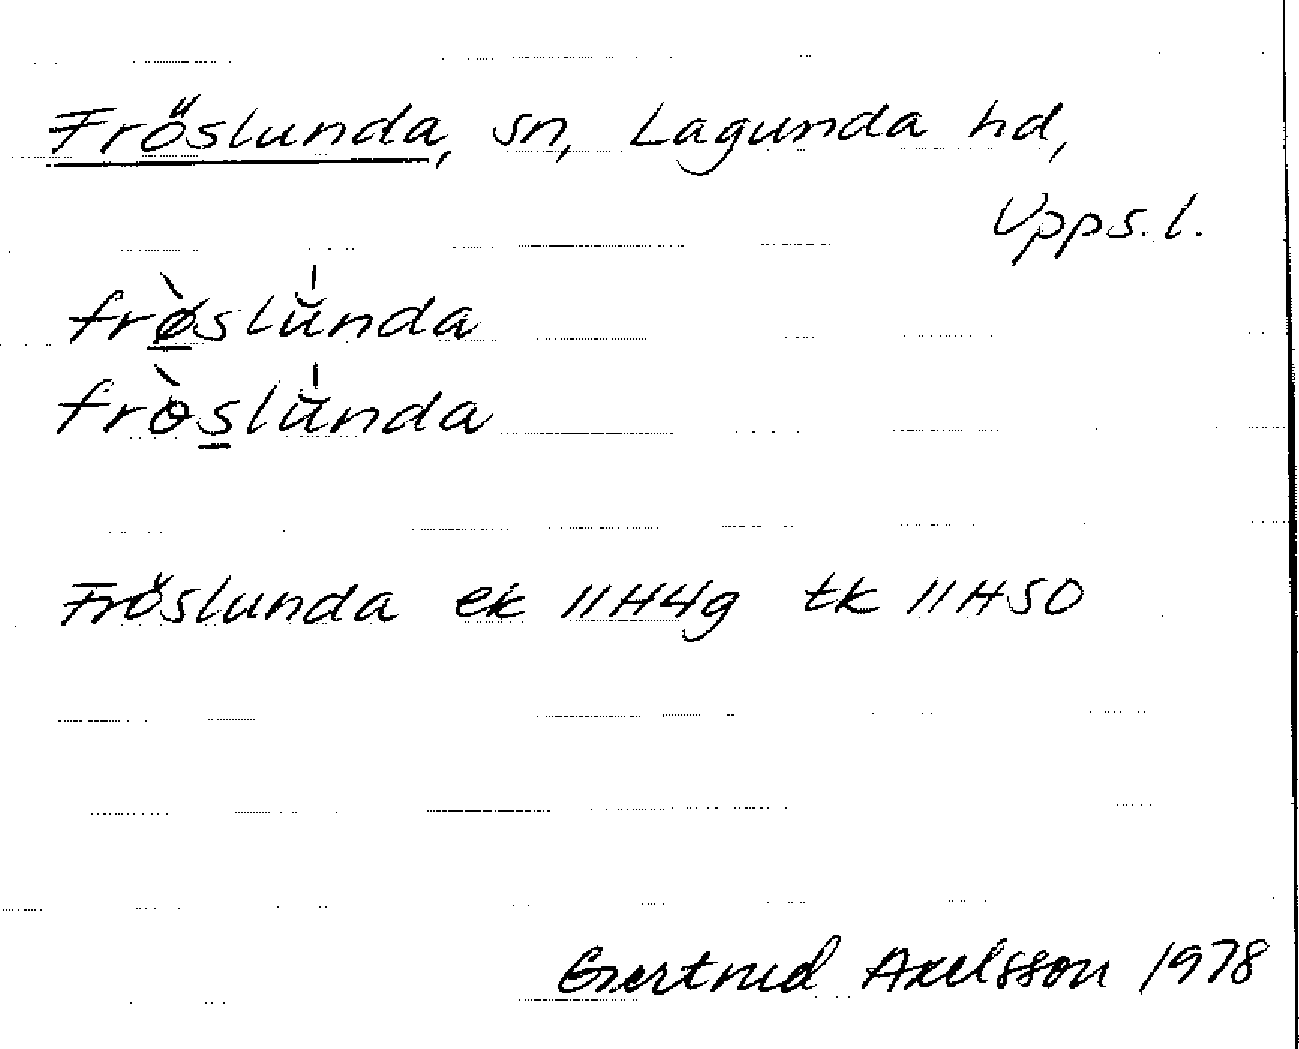 Fröslunda, sn, Lagunda hd,
Upps. l.
frø̀slŭ́nda
frɵ̀slŭ́nda
Fröslunda ek 11H4g tk 11H50
Gertrud Axelsson 1978